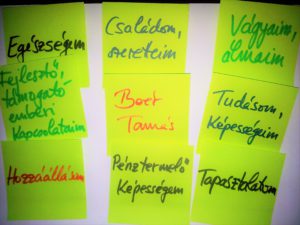 Egészségem
Családom,
szeretteim
Vágyaim,
álmaim
Fejlesztő,
támogató
emberi
kapcsolataim
Boér
Tamás
Tudásom,
Képességeim
Hozzáállásom
Pénztermelő
Képességem
Tapasztalatom